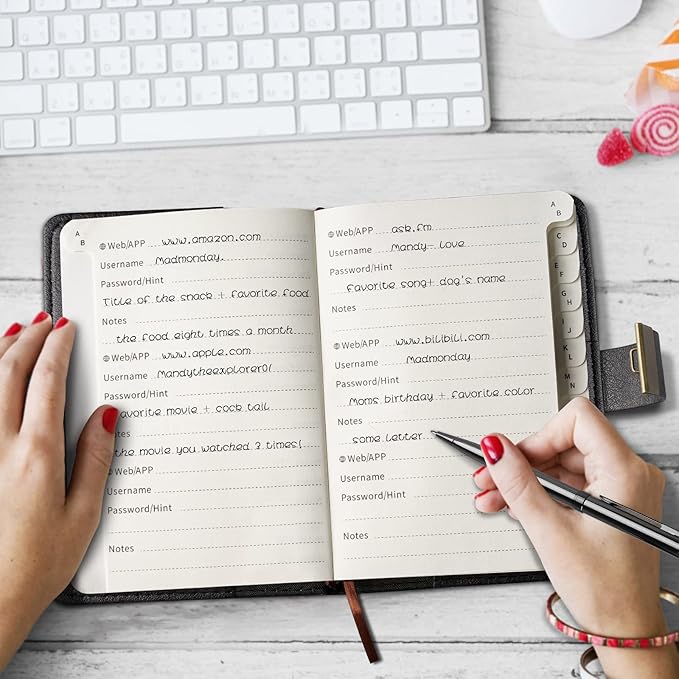 A
B
Web/APP www.amazon.com
Username Madmonday.
Password/Hint
Title of the snack + favorite food
Notes
the food eight times a month
Web/APP www.apple.com
Username Mandytheexplorer0(
Password/Hint
avorite movie + cock tail
Notes
the movie you watched 3 times(
Web/APP
Username
Password/Hint
Notes
Web/APP ask.fm
Username Mandy- love
Password/Hint
favorite song+ dog's name
Notes
Web/APP www.bilibili.com
Username Madmonday
Password/Hint
Moms birthday + favorite color
Notes
some letter
Web/APP
Username
Password/Hint
Notes
A
B
C
D
E
F
G
H
I
J
K
L
M
N